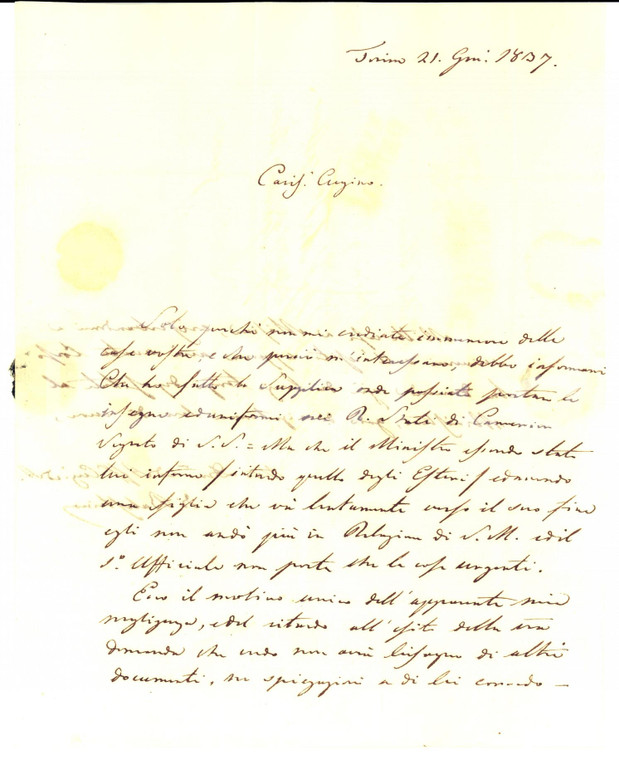 Torino 21. Gen: 1837.
Cariss.o Cugino.
Solo perchè non mi crediate immemore delle
cose vostre e che perciò m'interessano, debbo informarvi
Che ho fatto la Supplica onde possiate portare le
insegne ed uniformi nei R. Stati di Cameriere
Segreto di S. S. = Ma che il Ministro essendo stato
lui infermo / intendo quello degli Esteri / ed avendo
una figlia che và lentamente verso il suo fine
egli non andò più in Relazione di S. M. ed il
1.o Ufficiale non porta che le cose urgenti.
Ecco il motivo unico dell'apparente mia
negligenza, e del ritardo all'esito della sua
dimanda che credo non avrà bisogno di altri
documenti, ne spiegazioni a di lei